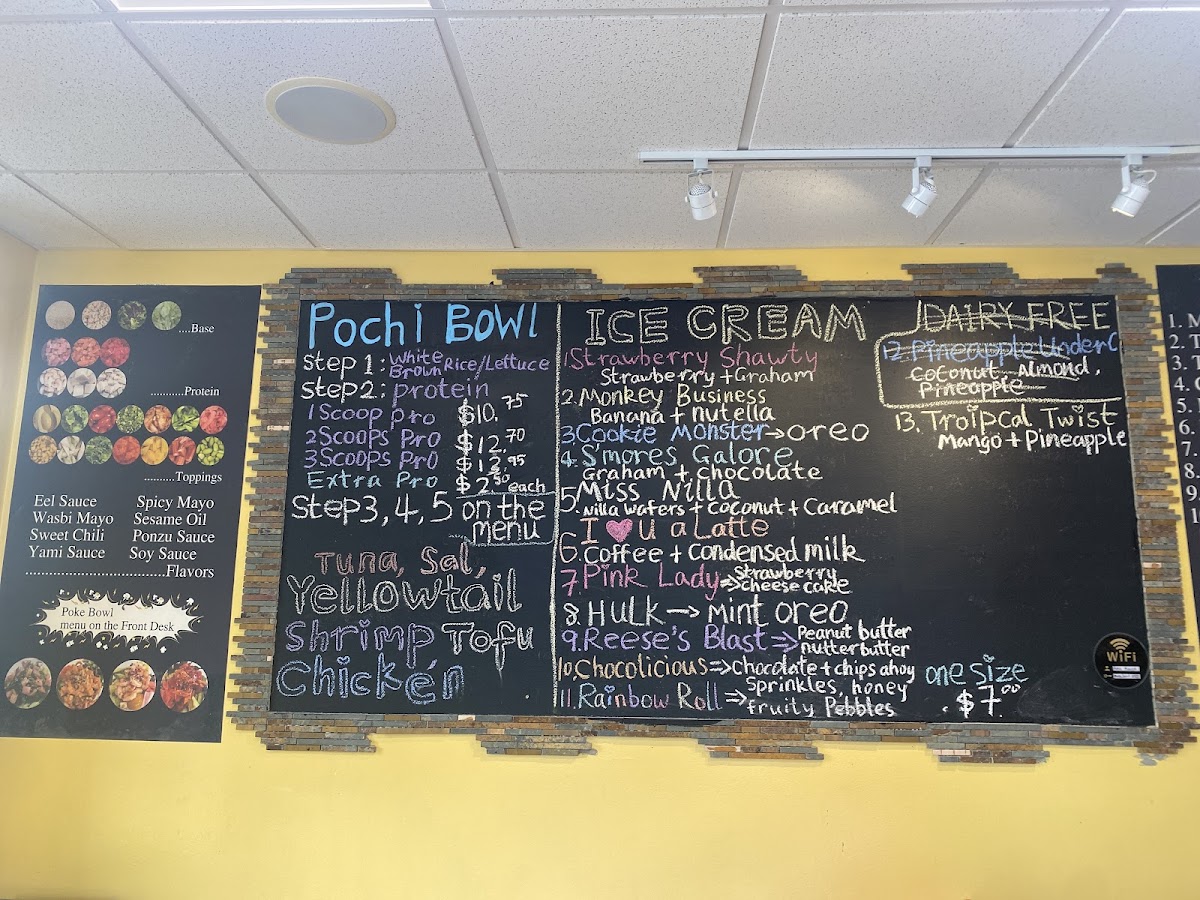 ....Base
..........Protein
..........Toppings
Eel Sauce Spicy Mayo
Wasbi Mayo Sesame Oil
Sweet Chili Ponzu Sauce
Yami Sauce Soy Sauce
..................................Flavors
Poke Bowl
menu on the Front Desk
Pochi Bowl
Step 1: White Rice/Lettuce
Brown
Step2: protein
1 Scoop pro $10.75
2 Scoops Pro $12.70
3 Scoops Pro
Extra Pro $2.50 each
Step 3, 4, 5 on the
menu
Tuna, Sal,
Yellowtail
Shrimp Tofu
Chicken
ICE CREAM
1. Strawberry Shawty
Strawberry + Graham
2. Monkey Business
Banana + nutella
3. Cookie Monster → oreo
4. S'mores Galore
Graham + chocolate
5. Miss Nilla
Nilla wafers + coconut + Caramel
I ♥ u a Latte
6. Coffee + condensed milk
7. Pink Lady ⇒ Strawberry
cheese cake
8. HULK → Mint oreo
9. Reese's Blast ⇒ Peanut butter
nutter butter
10. Chocolicious ⇒ chocolate + chips ahoy
11. Rainbow Roll ⇒ Sprinkles, honey
fruity Pebbles
DAIRY FREE
12. Pineapple Under C
Coconut, Almond,
Pineapple
13. Troipcal Twist
Mango + Pineapple
one size
$7.00
WiFi
1. M
2. T
3.
4.
5.
6.
7.
8.
9